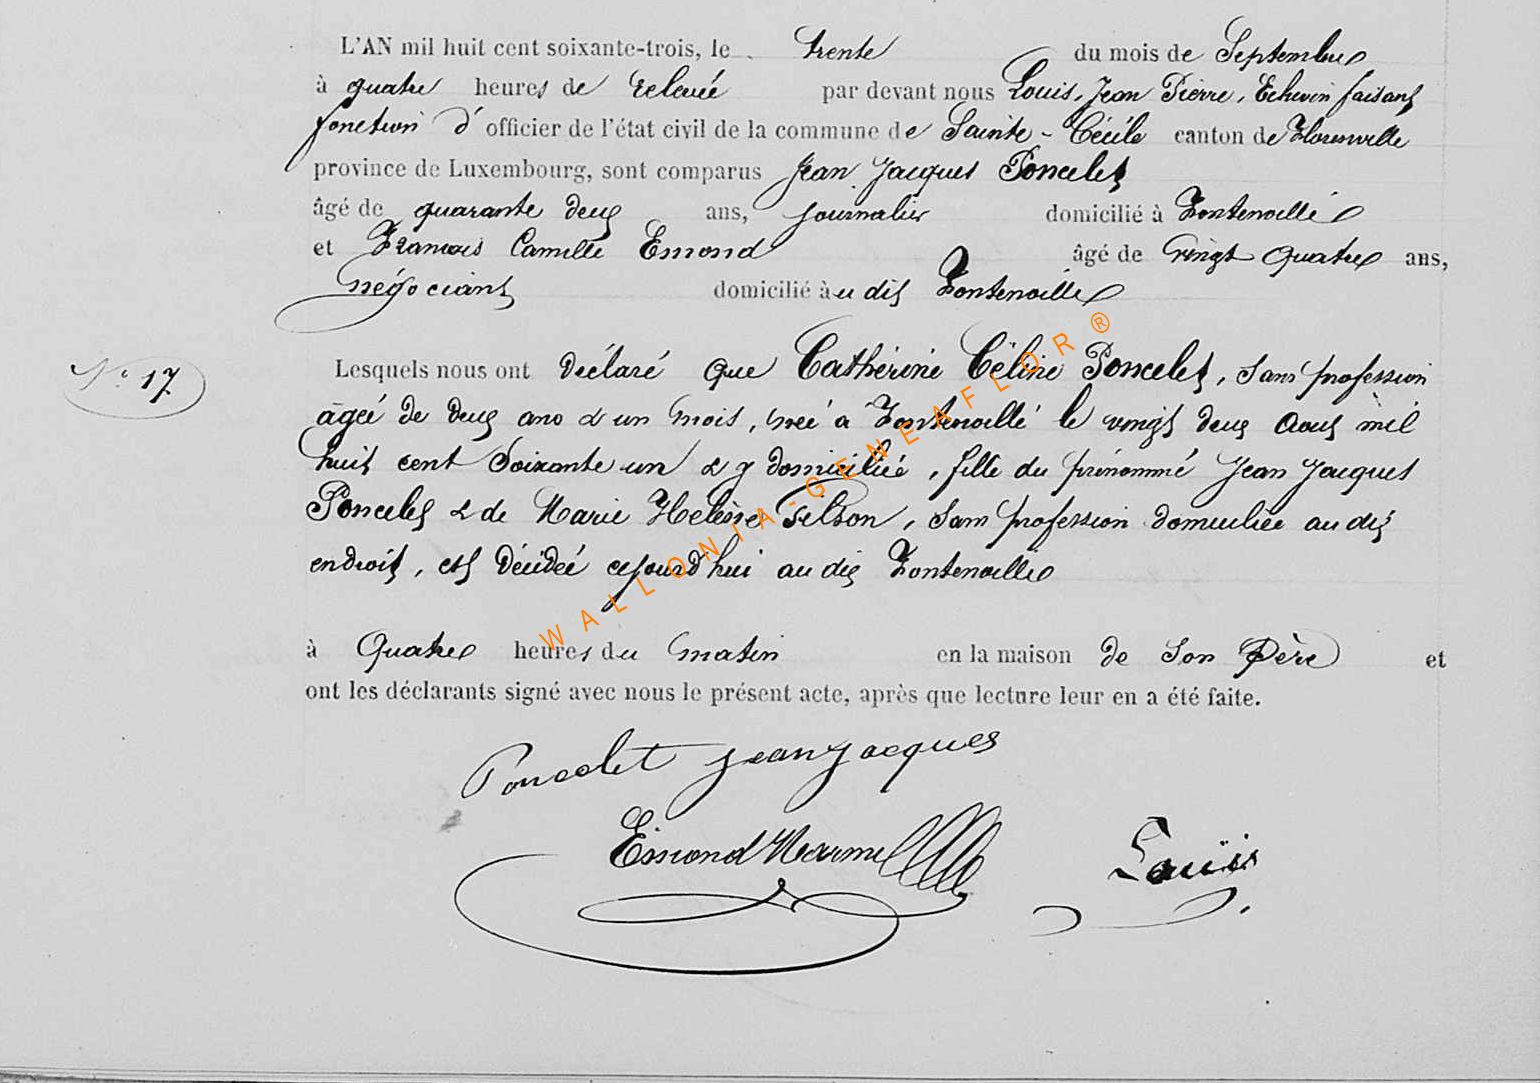 L'AN mil huit cent soixante-trois, le trente du mois de Septembre
à quatre heures de relevée par devant nous Louis, Jean Pierre, Echevin faisant
fonction d'officier de l'état civil de la commune de Sainte-Cécile canton de Florenville
province de Luxembourg, sont comparus Jean Jacques Poncelet
âgé de quarante deux ans, journalier domicilié à Fontenoille
et François Camille Emond âgé de vingt quatre ans,
négociant domicilié au dit Fontenoille
N° 17
Lesquels nous ont déclaré que Cathérine Céline Poncelet, sans profession
âgée de deux ans & un mois, née à Fontenoille le vingt deux aout mil
huit cent soixante un & y domiciliée, fille du prénommé Jean Jacques
Poncelet & de Marie Helène Gilson, sans profession domiciliée au dit
endroit, est décédée cejourd'hui au dit Fontenoille
à quatre heures du matin en la maison de son Père et
ont les déclarants signé avec nous le présent acte, après que lecture leur en a été faite.
Poncelet jean jacques
Emond
Louis
WALLONIA-GENEAFLOR®